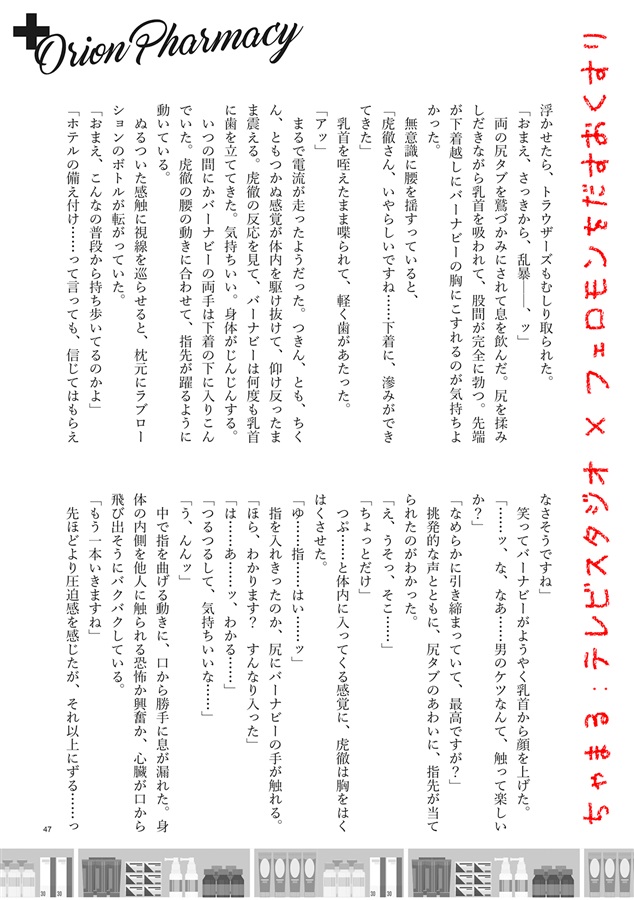 Orion Pharmacy
ちゃまる：テレビスタジオ×フェロモンをだすおくすり
浮かせたら、トラウザーズもむしり取られた。
「おまえ、さっきから、乱暴――、ッ」
両の尻タブを鷲づかみにされて息を飲んだ。尻を揉み
しだきながら乳首を吸われて、股間が完全に勃つ。先端
が下着越しにバーナビーの胸にこすれるのが気持ちよ
かった。
無意識に腰を揺すっていると、
「虎徹さん、いやらしいですね……下着に、滲みができ
てきた」
乳首を咥えたまま喋られて、軽く歯があたった。
「アッ」
まるで電流が走ったようだった。つきん、とも、ちく
ん、ともつかぬ感覚が体内を駆け抜けて、仰け反ったま
ま震える。虎徹の反応を見て、バーナビーは何度も乳首
に歯を立ててきた。気持ちいい。身体がじんじんする。
いつの間にかバーナビーの両手は下着の下に入りこん
でいた。虎徹の腰の動きに合わせて、指先が躍るように
動いている。
ぬるついた感触に視線を巡らせると、枕元にラブロー
ションのボトルが転がっていた。
「おまえ、こんなの普段から持ち歩いてるのかよ」
「ホテルの備え付け……って言っても、信じてはもらえ
なさそうですね」
笑ってバーナビーがようやく乳首から顔を上げた。
「……ッ、な、なあ……男のケツなんて、触って楽しい
か？」
「なめらかに引き締まっていて、最高ですが？」
挑発的な声とともに、尻タブのあわいに、指先が当て
られたのがわかった。
「え、うそっ、そこ……」
「ちょっとだけ」
つぷ……と体内に入ってくる感覚に、虎徹は胸をはく
はくさせた。
「ゆ……指……はい……ッ」
指を入れきったのか、尻にバーナビーの手が触れる。
「ほら、わかります？　すんなり入った」
「は……あ……ッ、わかる……」
「つるつるして、気持ちいいな……」
「う、んんッ」
中で指を曲げる動きに、口から勝手に息が漏れた。身
体の内側を他人に触られる恐怖か興奮か、心臓が口から
飛び出そうにバクバクしている。
「もう一本いきますね」
先ほどより圧迫感を感じたが、それ以上にずる……っ
47
30
30
30
30